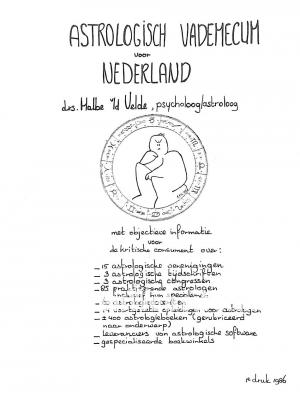 ASTROLOGISCH VADEMECUM
voor
NEDERLAND
drs. Halbe v/d Velde, psycholoog/astroloog
met objectieve informatie
voor
de kritische consument over:
_ 15 astrologische verenigingen
_ 3 astrologische tijdschriften
_ 3 astrologische congressen
_ 85 praktiserende astrologen
inclusief hun
_ astrologie
_ 14 voortgezette opleidingen voor astrologen
_ ±400 astrologieboeken (gerubriceerd
naar onderwerp)
_ leveranciers van astrologische software
_ gespecialiseerde boekwinkels
1e druk 1986